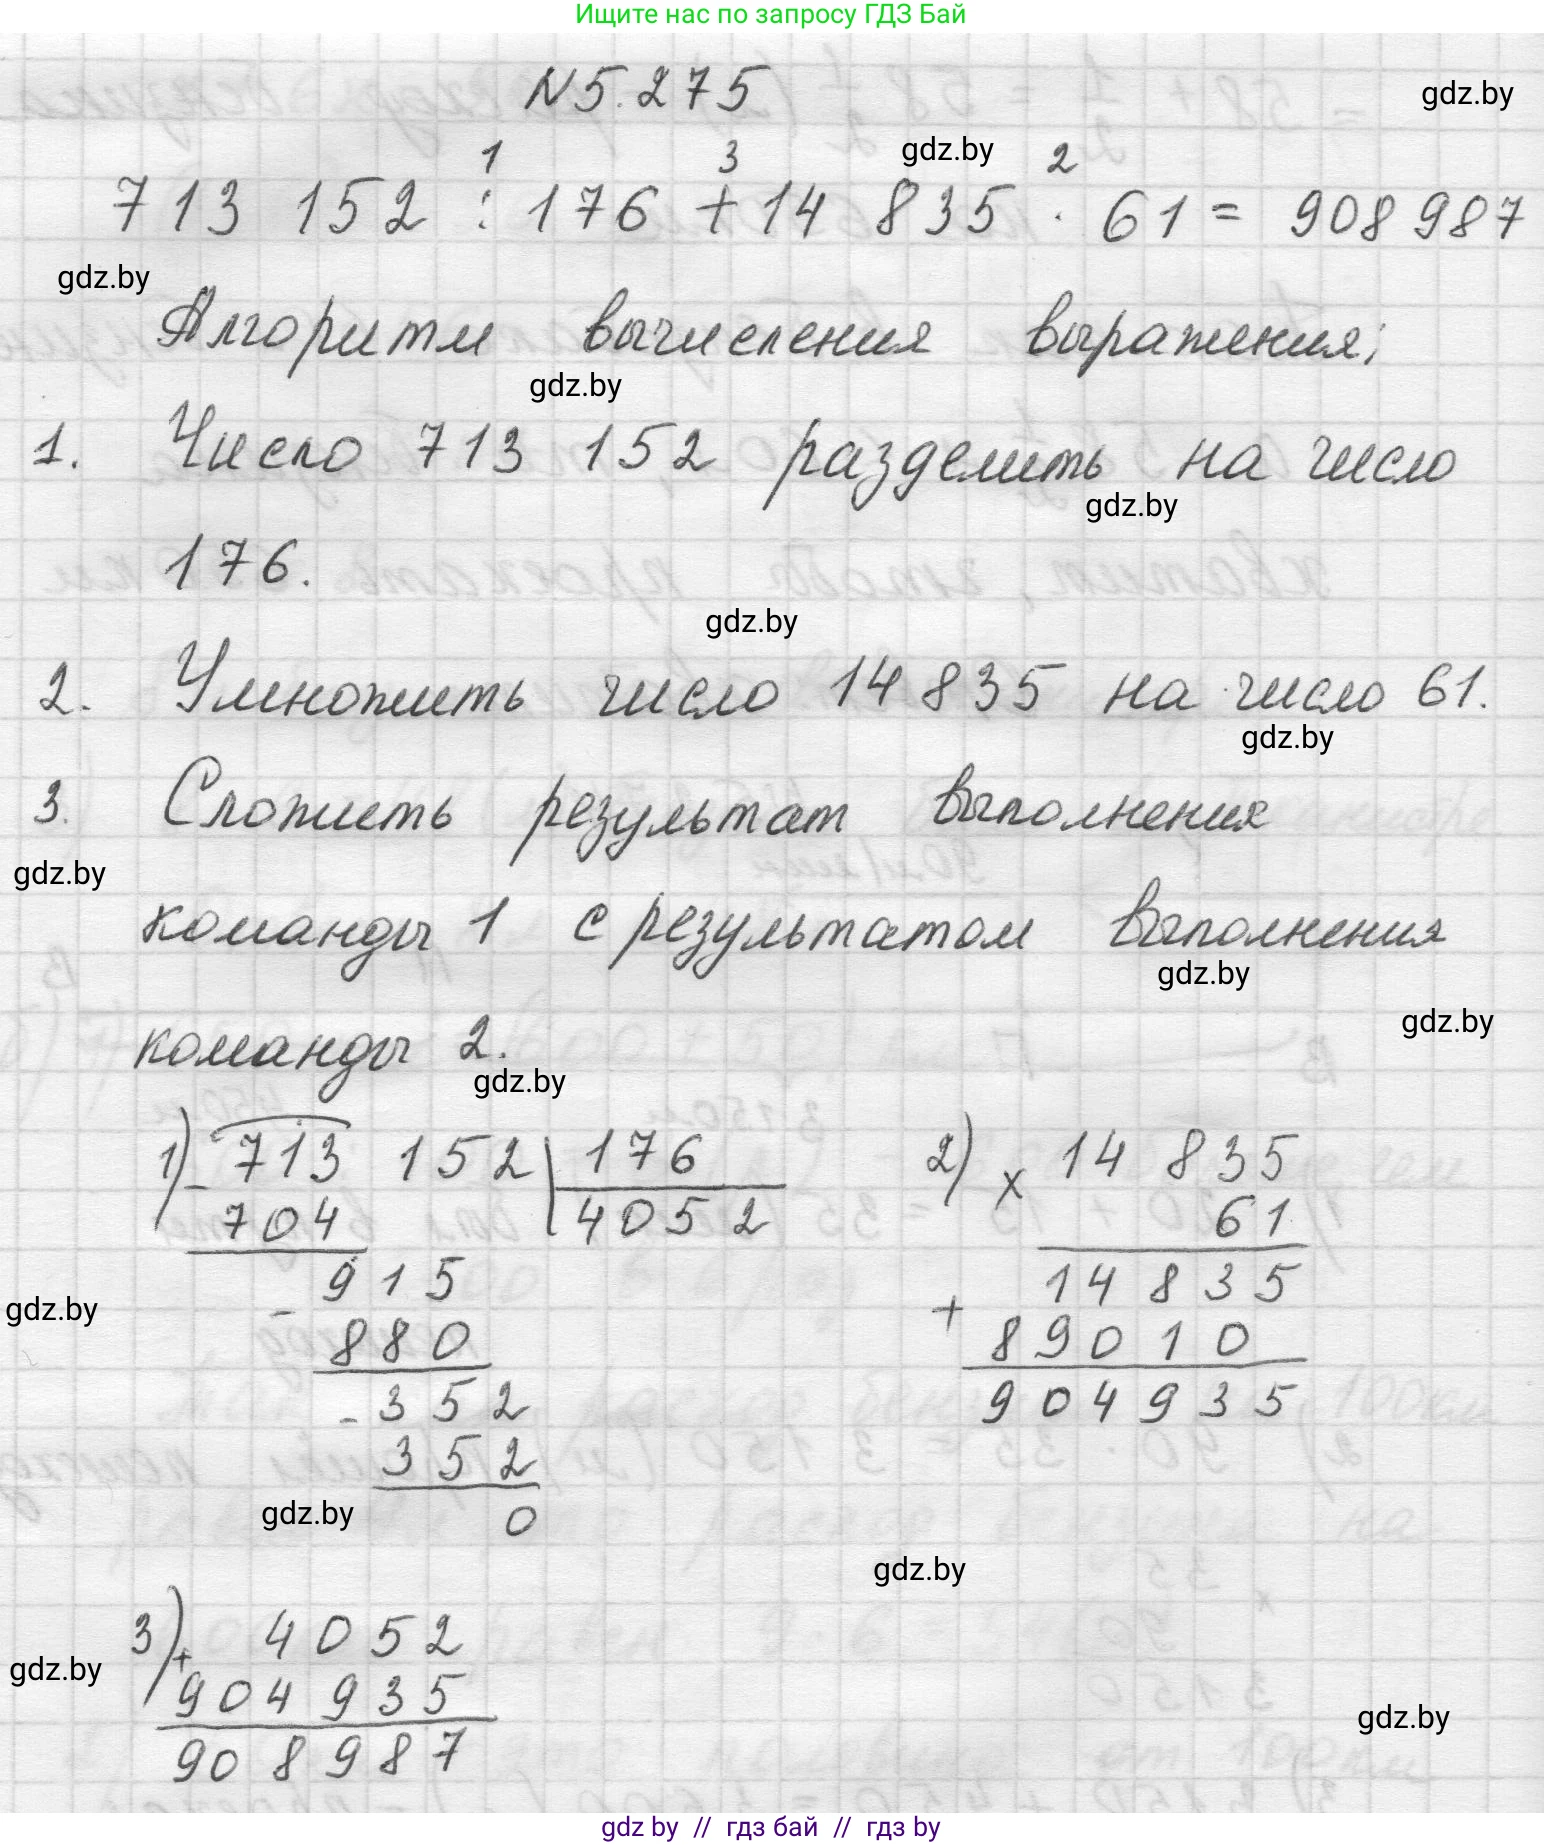 Ищите нас по запросу ГДЗ Бай
N5.275
gdz.by
1 3 gdz.by 2
713 152 : 176 + 14 835 · 61 = 908 987
gdz.by
Алгоритм вычисления выражения;
gdz.by
1. Число 713 152 разделить на число
gdz.by
176.
gdz.by
2. Умножить число 14 835 на число 61.
gdz.by
3. Сложить результат выполнения
gdz.by
команды 1 с результатом выполнения
gdz.by
gdz.by
команды 2.
gdz.by
1) - 713 152 | 176
704 4052
915
gdz.by
- 880
- 352
352
gdz.by
0
2) x 14 835
61
14 835
+ 89010
904935
gdz.by
3) + 4052
gdz.by
904 935
908 987
gdz.by
gdz by // гдз бай // гдз by